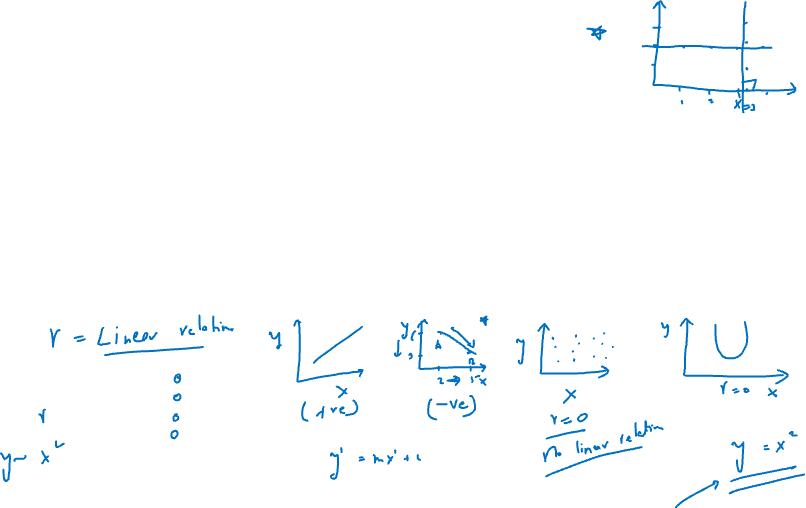 x = 3
r = Linear relation
y
x
(+ve)
y
A
B
2 → 15 x
(-ve)
y
x
r = 0
No linear relation
y
r = 0 x
y = x²
r
y ~ x²
y' = mx' + c